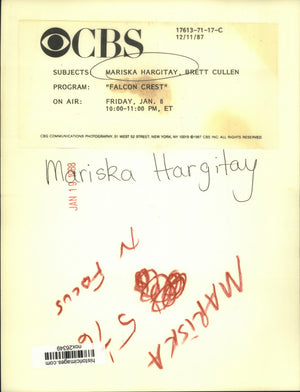 CBS
17613-71-17-C
12/11/87
SUBJECTS: MARISKA HARGITAY, BRETT CULLEN
PROGRAM: "FALCON CREST"
ON AIR: FRIDAY, JAN. 8
10:00-11:00 PM, ET
CBS COMMUNICATIONS PHOTOGRAPHY, 51 WEST 52 STREET, NEW YORK, NY 10019 ©1987 CBS INC. ALL RIGHTS RESERVED
Mariska Hargitay
JAN 19
MARISKA
5-16
N FOCUS
historicimages.com
nox26349